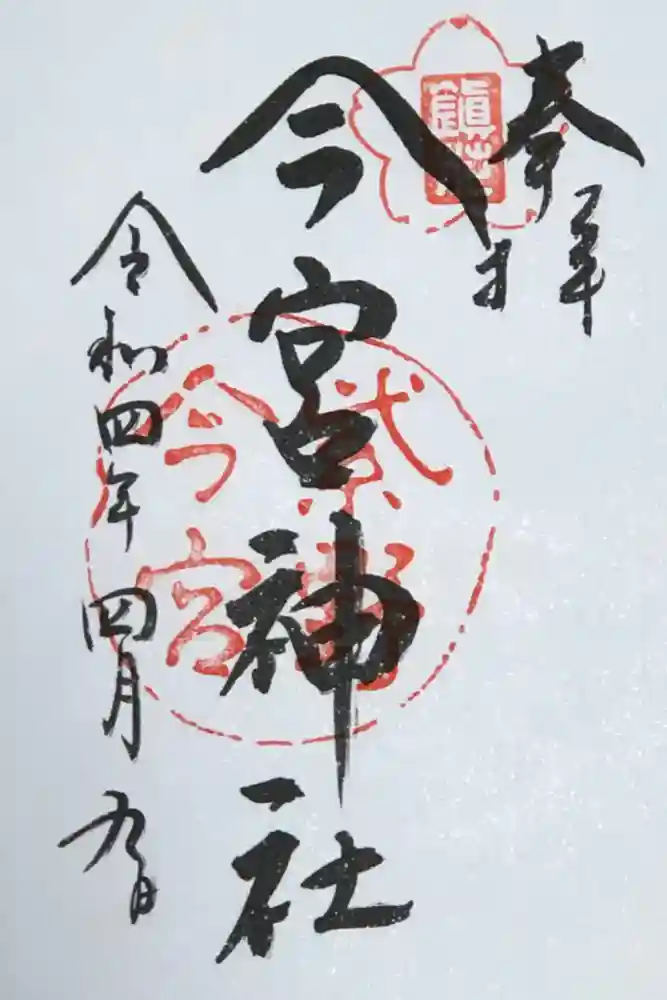 奉拝
今宮神社
紫野
今宮
令和四年四月九日